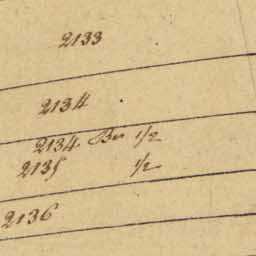 2133
2134
2134. Bis 1/2
2135 1/2
2136